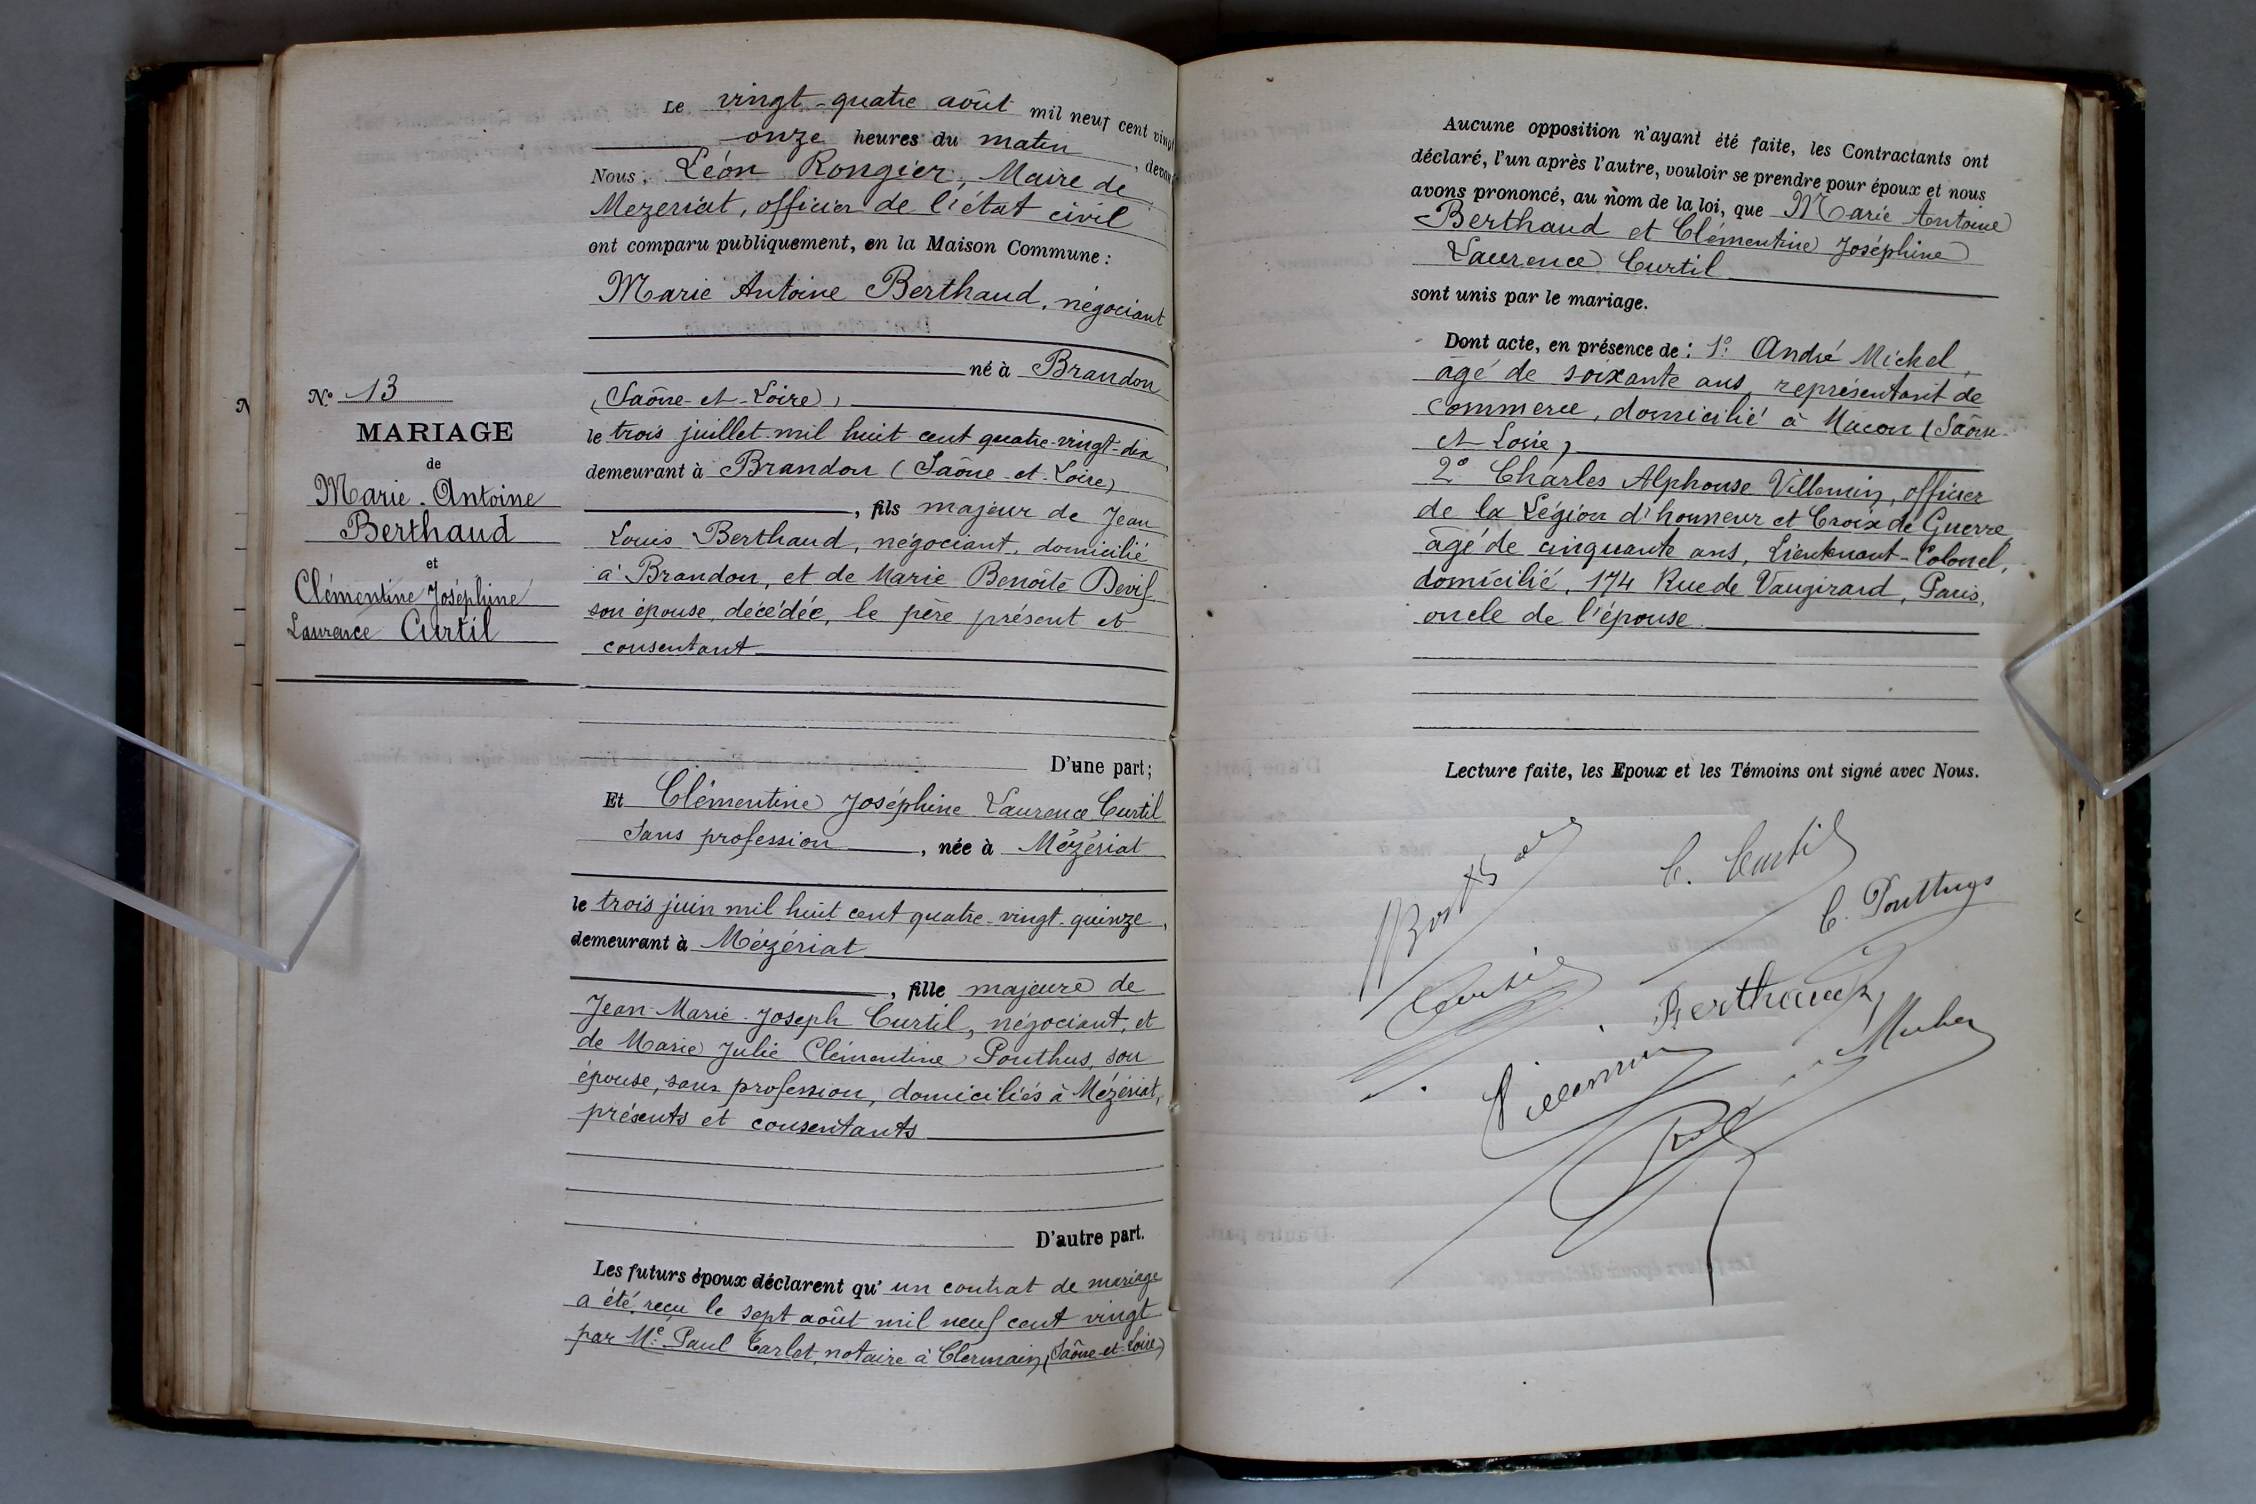 Le vingt-quatre août mil neuf cent vingt
onze heures du matin, devant
Nous, Léon Rongier, Maire de
Mezeriat, officier de l'état civil
ont comparu publiquement, en la Maison Commune :
Marie Antoine Berthaud, négociant
né à Brandon
(Saône-et-Loire),
le trois juillet mil huit cent quatre-vingt-dix,
demeurant à Brandon (Saône-et-Loire)
, fils majeur de Jean
Louis Berthaud, négociant, domicilié
à Brandon, et de Marie Benoîte
son épouse, décédée, le père présent et
consentant
D'une part;
N° 13
MARIAGE
de
Marie-Antoine
Berthaud
et
Clémentine Joséphine
Laurence Curtil
Et Clémentine Joséphine Laurence Curtil
Sans profession, née à Mézériat
le trois juin mil huit cent quatre-vingt-quinze,
demeurant à Mézériat
, fille majeure de
Jean-Marie-Joseph Curtil, négociant, et
de Marie Julie Clémentine Ponthus, son
épouse, sans profession, domiciliés à Mézériat,
présents et consentants
D'autre part.
Les futurs époux déclarent qu'un contrat de mariage
a été reçu le sept août mil neuf cent vingt
par Me Paul Tarlet, notaire à Clermain, (Saône-et-Loire)
Aucune opposition n'ayant été faite, les Contractants ont
déclaré, l'un après l'autre, vouloir se prendre pour époux et nous
avons prononcé, au nom de la loi, que Marie Antoine
Berthaud et Clémentine Joséphine
Laurence Curtil
sont unis par le mariage.
Dont acte, en présence de : 1° André Michel,
âgé de soixante ans, représentant de
commerce, domicilié à Macon (Saône-
et Loire)
2° Charles Alphonse Villemin, officier
de la Légion d'honneur et Croix de Guerre,
âgé de cinquante ans, Lieutenant-Colonel,
domicilié, 174 Rue de Vaugirard, Paris,
oncle de l'épouse.
Lecture faite, les Epoux et les Témoins ont signé avec Nous.
C. Curtil
Berthaud
Villemin